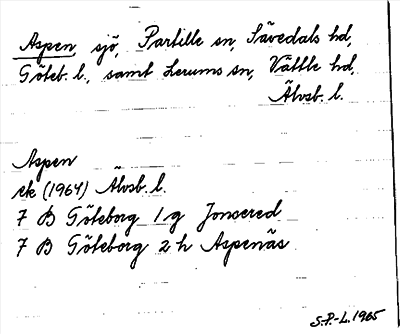 Aspen, sjö, Partille sn, Sävedals hd,
Göteb. l., samt Lerums sn, Vättle hd,
Älvsb. l.
Aspen
ek (1964) Älvsb. l.
7 B Göteborg 1 g Jonsered
7 B Göteborg 2 h Aspenäs
S.P.-L. 1965